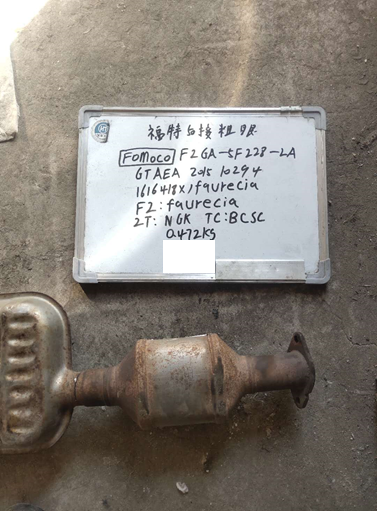 福特白接粗眼
FOMOCO F2GA-5F228-LA
GTAEA 2015 10294
1616418X1/faurecia
F2: faurecia
2T: NGK TC:BCSC
0.472kg